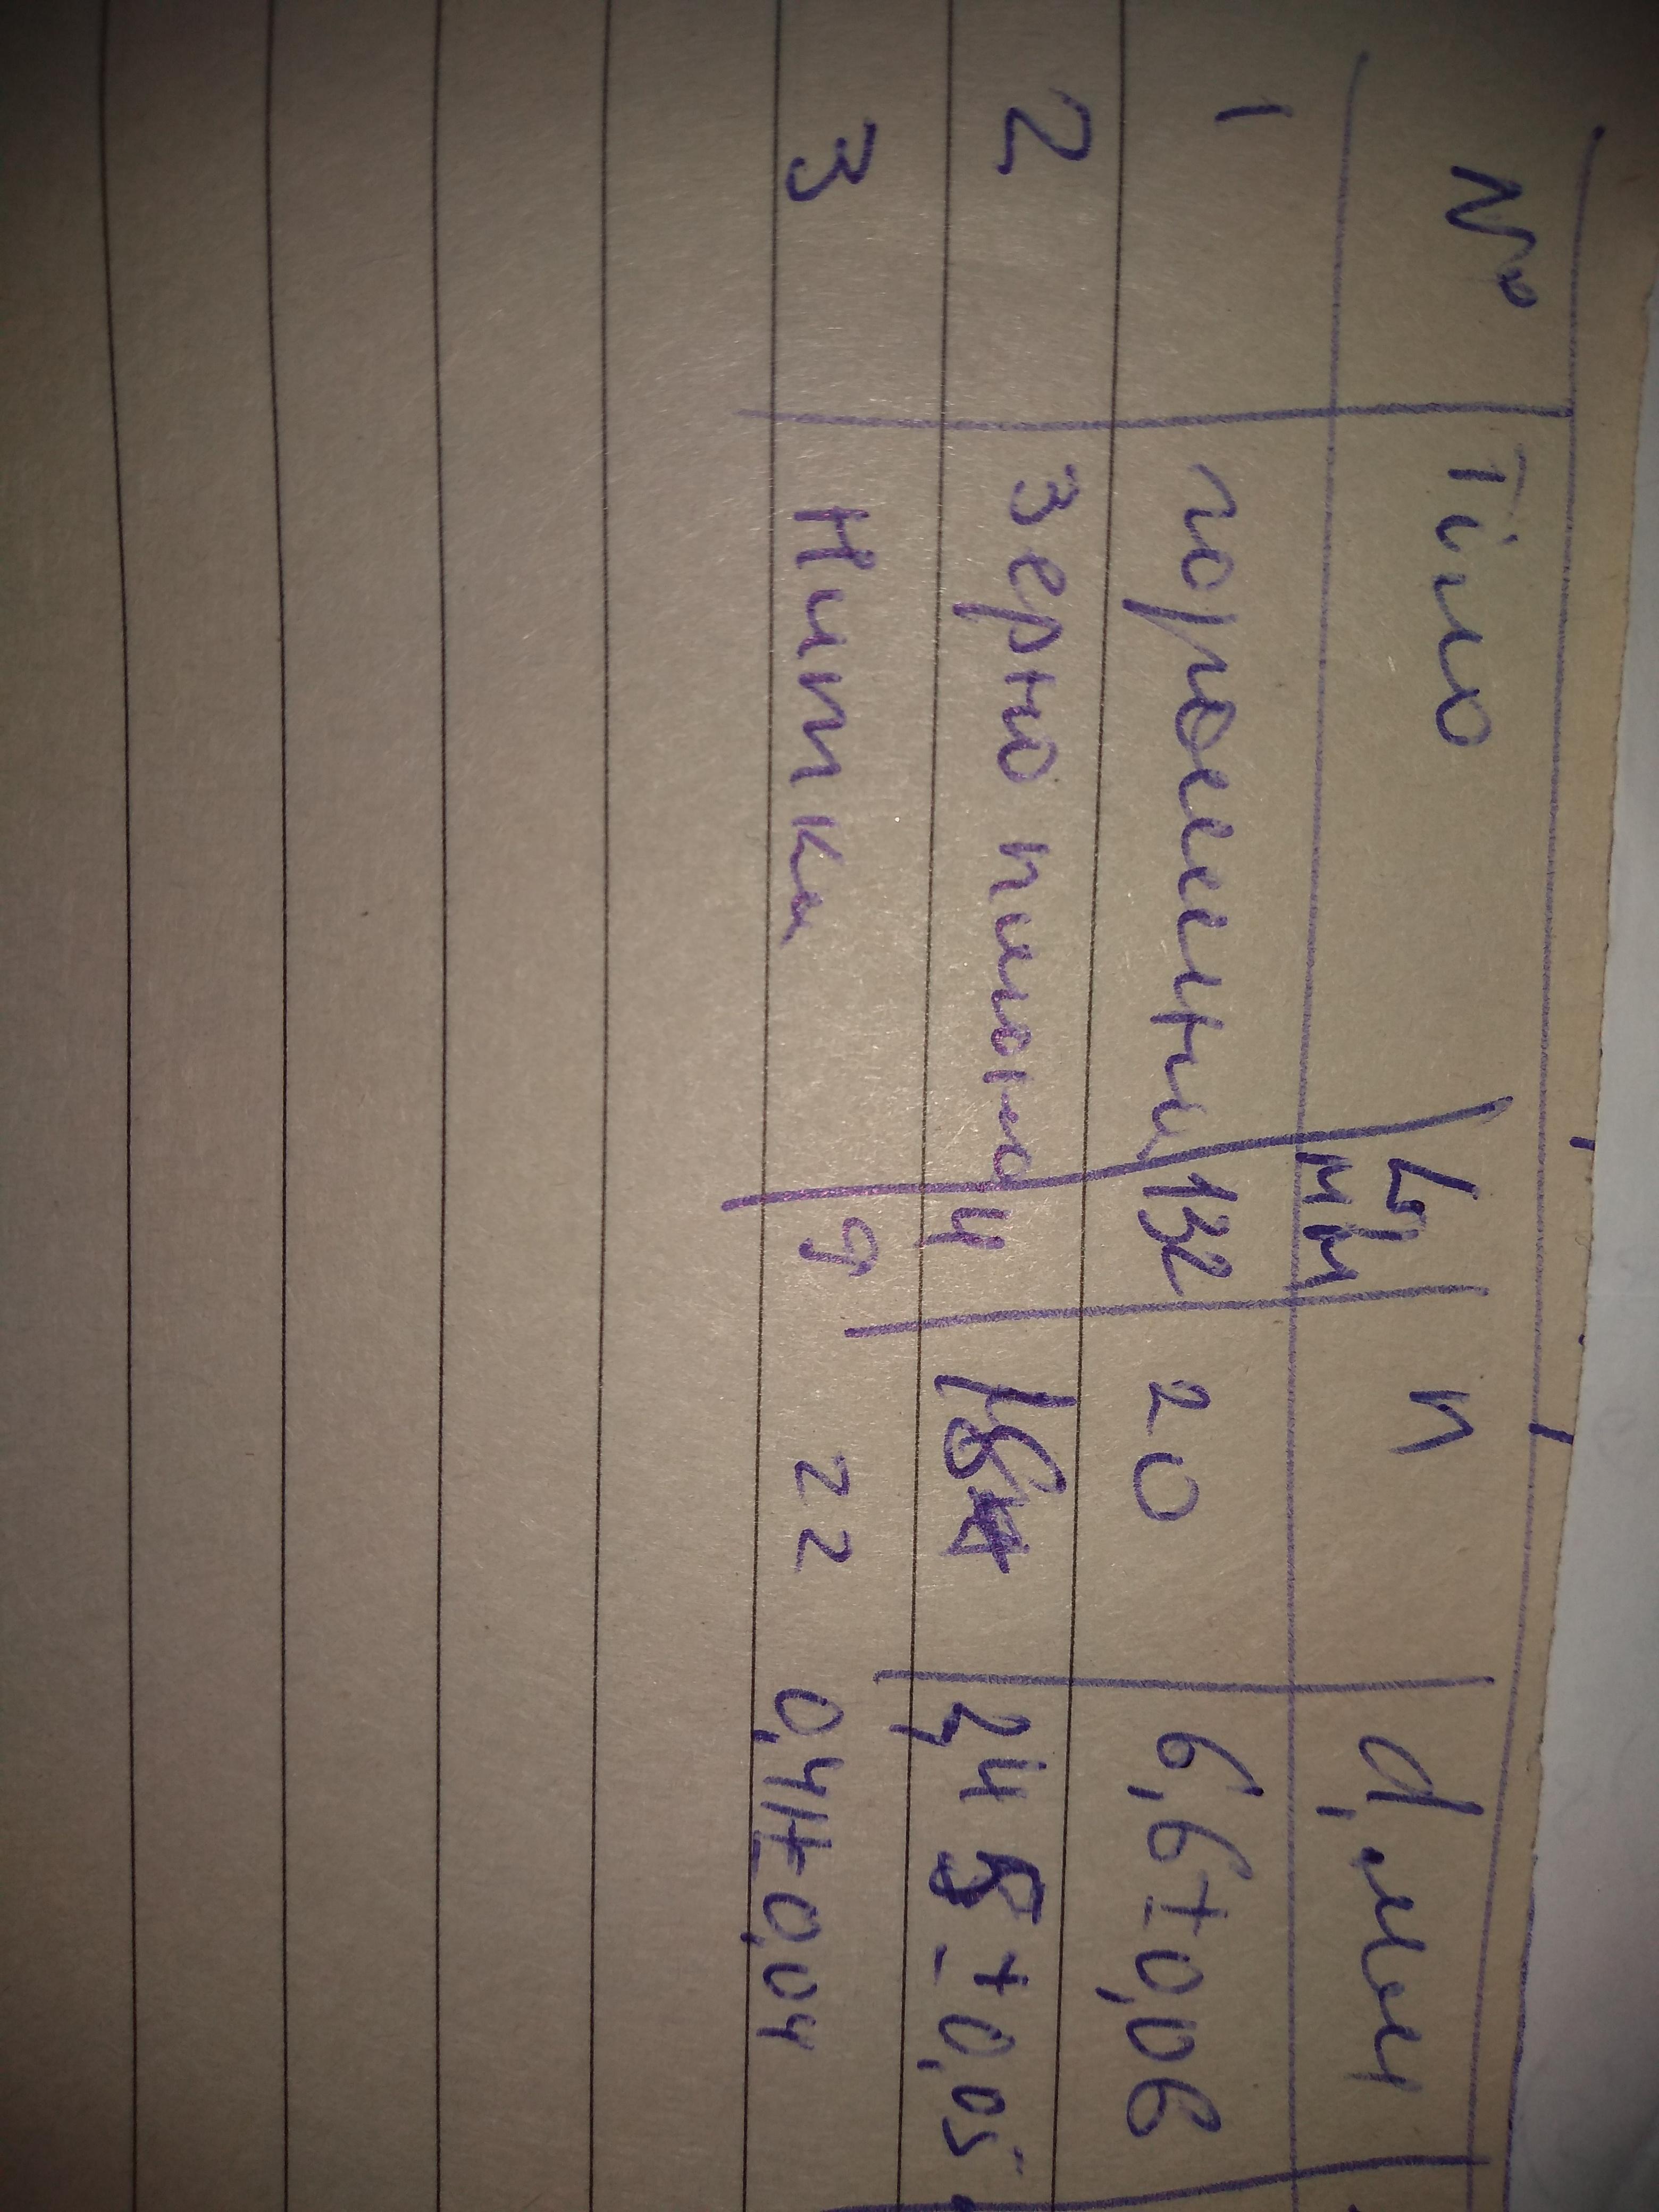 № Тіло L, мм n d, мм
1 горошини 132 20 6,6±0,06
2 зерно пшона 4 18 2,4 5 ±0,05
3 Нитка 9 22 0,41±0,04